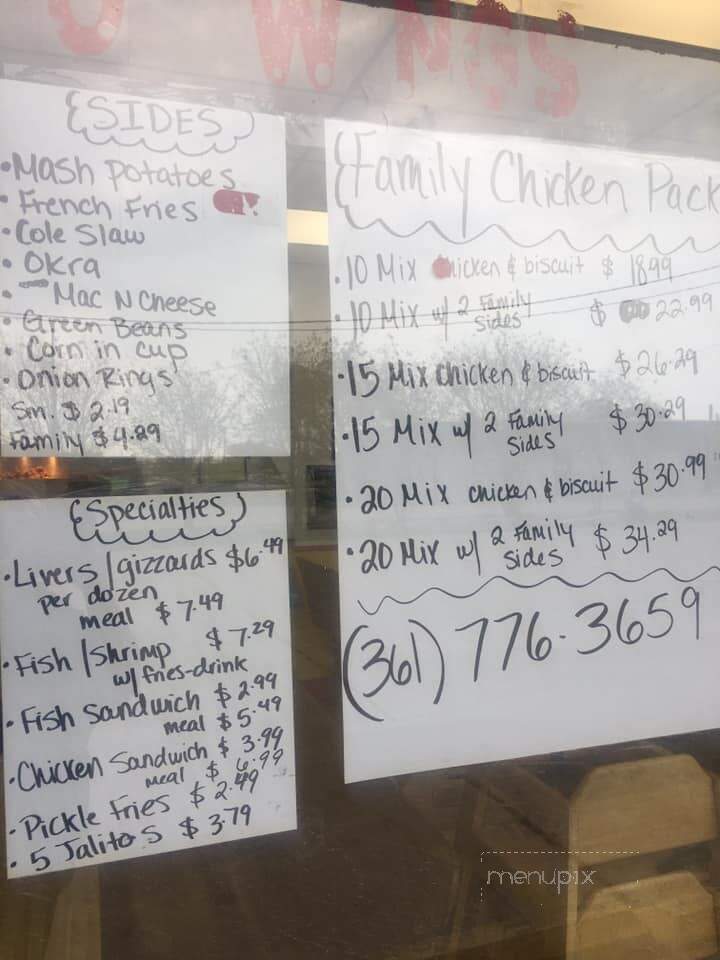 W NGS
SIDES
• Mash Potatoes
• French Fries
• Cole Slaw
• Okra
• Mac N Cheese
• Green Beans
• Corn in cup
• Onion Rings
Sm. $2.19
Family $4.29
Specialties
• Livers/gizzards $6.49
per dozen
meal $7.49
• Fish/Shrimp $7.29
w/ fries-drink
• Fish Sandwich $2.99
meal $5.49
• Chicken Sandwich $3.99
meal $6.99
• Pickle Fries $2.49
• 5 Jalitos $3.79
Family Chicken Pack
• 10 Mix chicken & biscuit $18.99
• 10 Mix w/ 2 Family Sides $22.99
• 15 Mix chicken & biscuit $26.29
• 15 Mix w/ 2 Family Sides $30.29
• 20 Mix chicken & biscuit $30.99
• 20 Mix w/ 2 Family Sides $34.29
(361) 776-3659
menupix